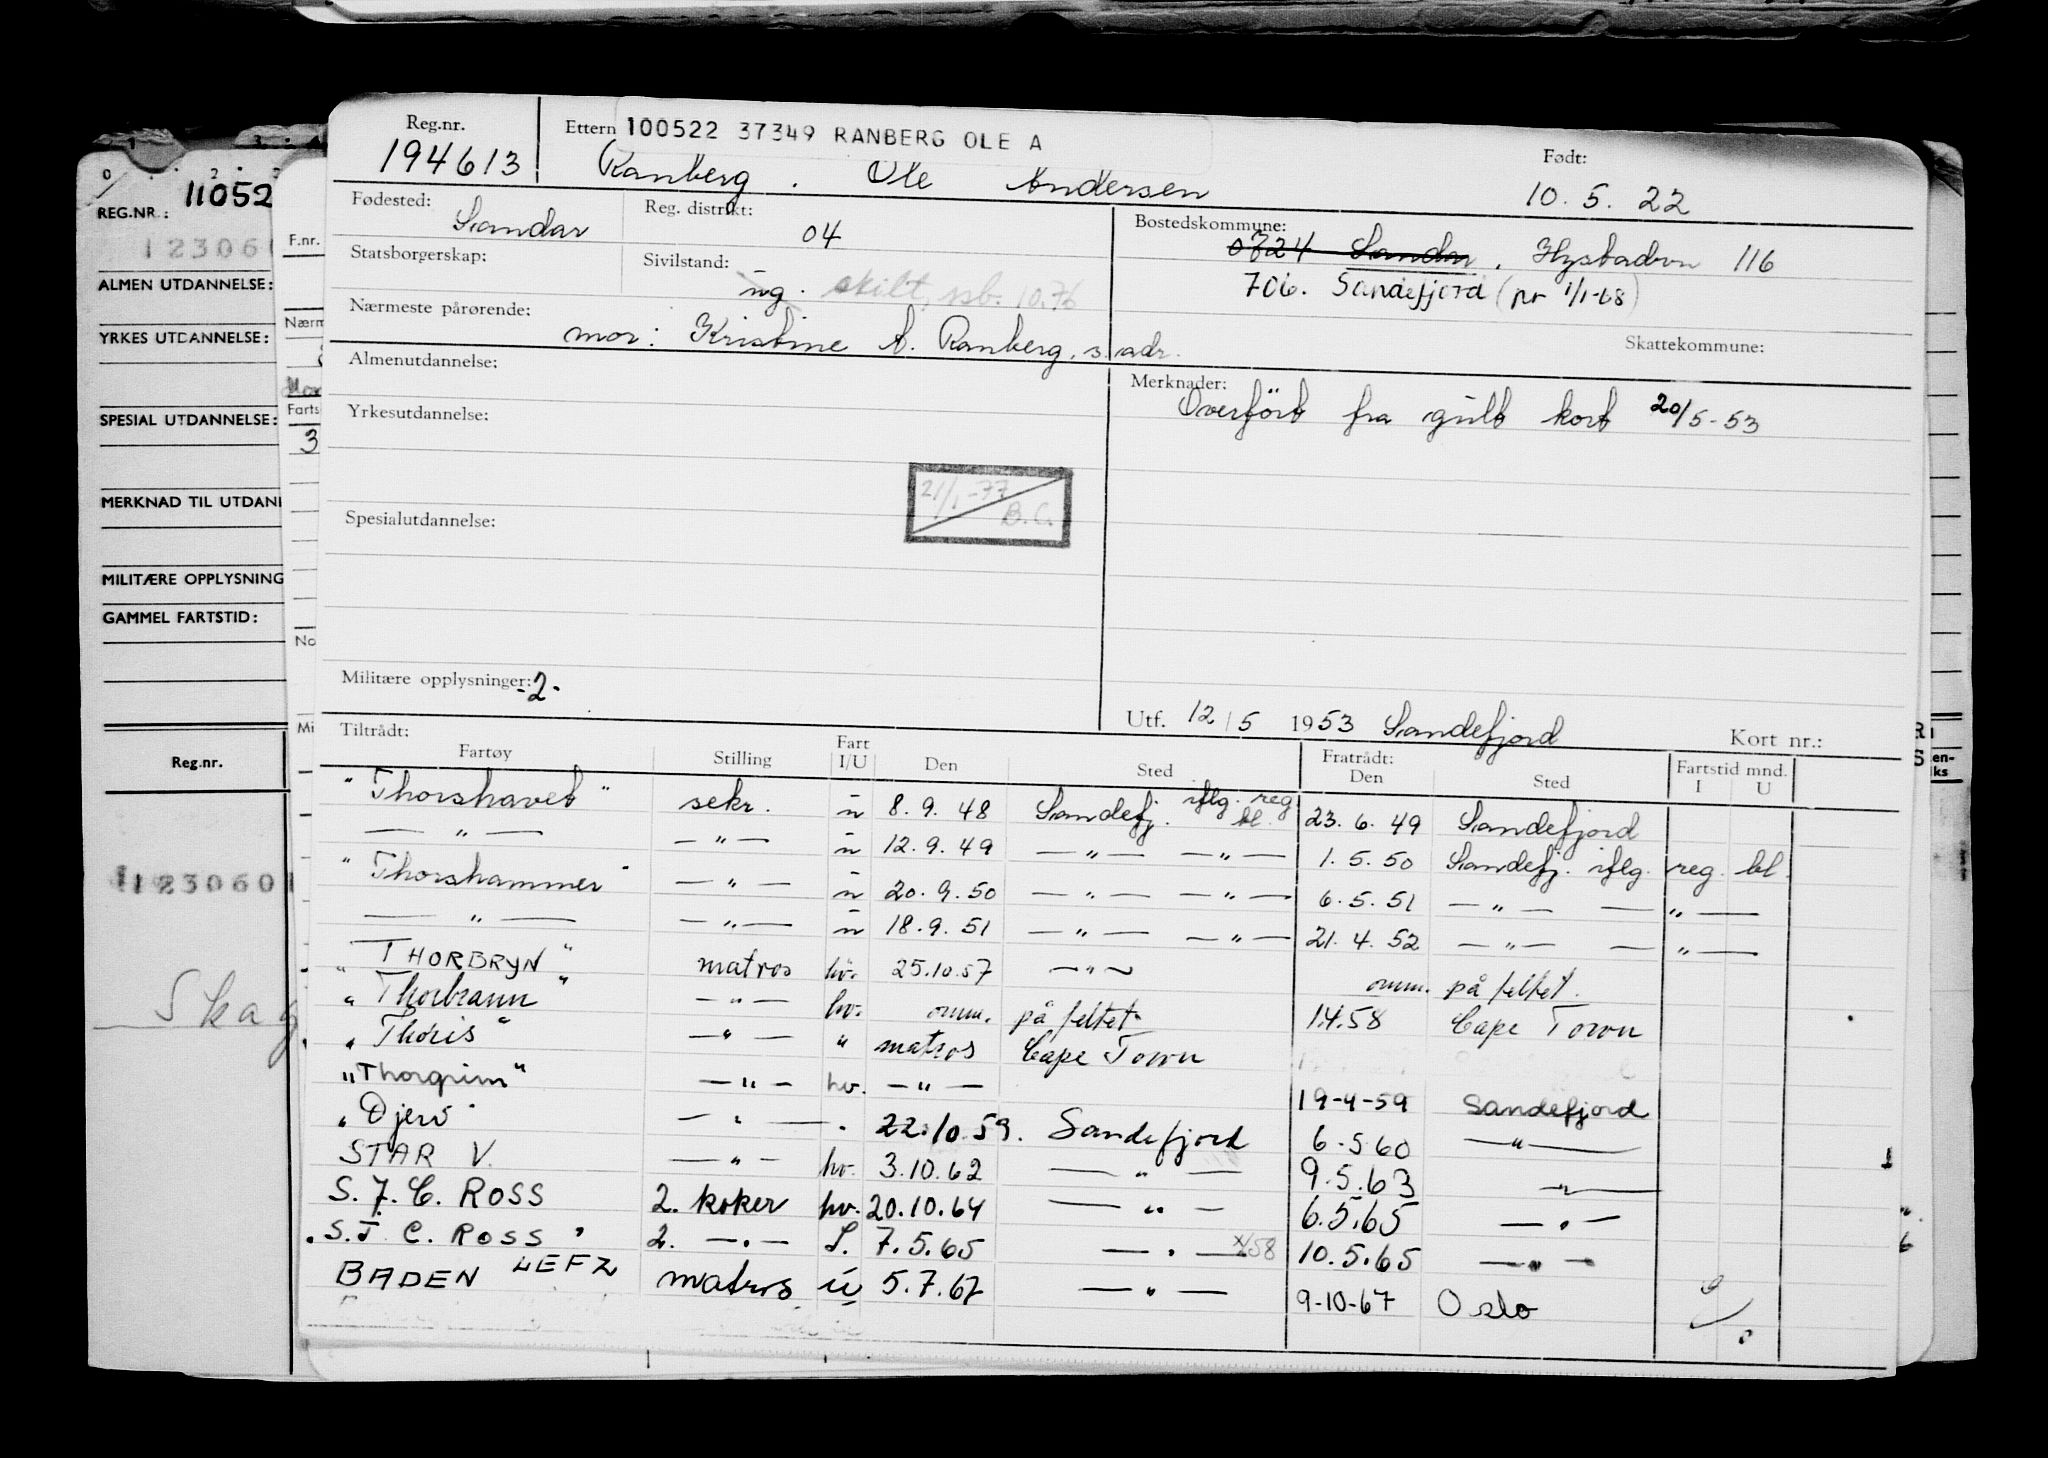 Reg.nr. Ettern 100522 37349 RANBERG OLE A Født:
194613 Ranberg . Ole Andersen 10. 5. 22
Fødested: Sandar Reg. distrikt: 04 Bostedskommune: 0724 Sandar, Hystadvn 116
Statsborgerskap: Sivilstand: ug. skilt, sb. 10.76 706. Sandefjord (pr 1/1-68)
Nærmeste pårørende: mor: Kristine A. Ranberg, s. adr. Skattekommune:
Almenutdannelse: Merknader:
Overført fra gult kort 20/5-53
Yrkesutdannelse:
21/1-77
B.C.
Spesialutdannelse:
Militære opplysninger: -2-
Utf. 12/5 1953 Sandefjord Kort nr.:
Tiltrådt: Fratrådt:
Fartøy Stilling Fart I/U Den Sted Den Sted Fartstid mnd. I U
"Thorshavet" sekr. u 8. 9. 48 Sandefj. iflg. reg bl. 23. 6. 49 Sandefjord
— " — — " — u 12. 9. 49 — " — — " — 1. 5. 50 Sandefj. iflg. reg. bl.
"Thorshammer" — " — u 20. 9. 50 — " — — " — 6. 5. 51 — " — — " —
— " — — " — u 18. 9. 51 — " — — " — 21. 4. 52 — " — — " —
"THORBRYN" matros hv. 25.10.57 — " — omm. på feltet.
"Thorbrann" — " — hv. omm. på feltet 1.4.58 Cape Town
"Thoris" — " — " matros Cape Town
"Thorgrim" — " — hv. — " — 19-4-59 Sandefjord
"Djerv" — " — . 22.10.59. Sandefjord 6.5.60 — " —
STAR V. — " — hv. 3.10.62 — " — 9.5.63 — " —
S. J. C. ROSS 2. koker hv. 20.10.64 — " — 6.5.65 — " —
"S. J. C. ROSS" 2. — " — S. 7.5.65 — " — 10.5.65 — " —
BADEN LEFZ matros u 5.7.67 — " — 9-10-67 Oslo
REG.NR.: 11052
123060
ALMEN UTDANNELSE:
YRKES UTDANNELSE:
SPESIAL UTDANNELSE:
MERKNAD TIL UTDAN
MILITÆRE OPPLYSNING
GAMMEL FARTSTID:
Reg.nr.
1230601
Skag
F.nr.
Nærm
Farts
3
No
Mi